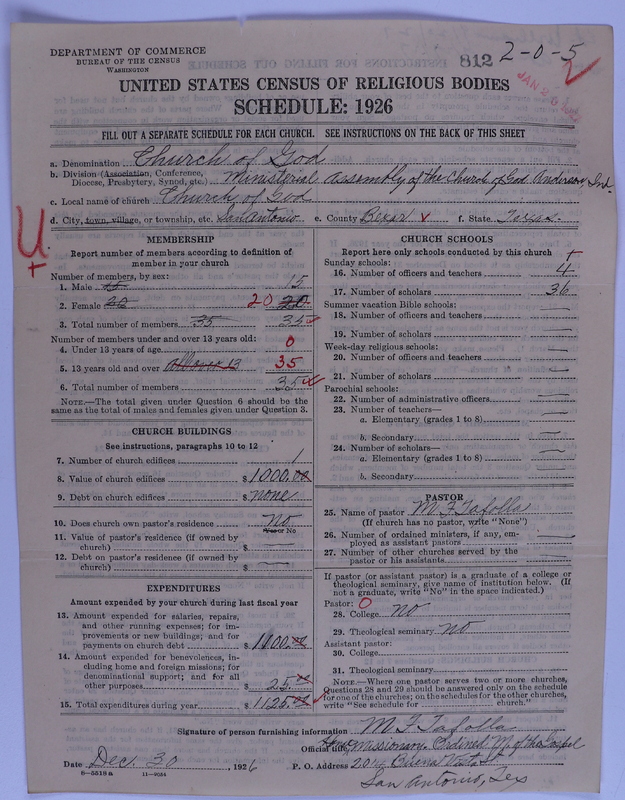 DEPARTMENT OF COMMERCE
BUREAU OF THE CENSUS
WASHINGTON
812 2-0-5
UNITED STATES CENSUS OF RELIGIOUS BODIES
SCHEDULE: 1926
FILL OUT A SEPARATE SCHEDULE FOR EACH CHURCH. SEE INSTRUCTIONS ON THE BACK OF THIS SHEET
a. Denomination Church of God
b. Division (Association, Conference,
Diocese, Presbytery, Synod, etc.) Ministerial Assembly of the Church of God Anderson, Ind.
c. Local name of church Church of God
d. City, town, village, or township, etc. San Antonio e. County Bexar f. State Texas.
MEMBERSHIP
Report number of members according to definition of
member in your church
Number of members, by sex:
1. Male 15 15
2. Female 20 20
3. Total number of members 35 35
Number of members under and over 13 years old:
4. Under 13 years of age 0
5. 13 years old and over all over 13 35
6. Total number of members 35
NOTE.—The total given under Question 6 should be
the same as the total of males and females given under Question 3.
CHURCH BUILDINGS
See instructions, paragraphs 10 to 12
7. Number of church edifices 1
8. Value of church edifices $ 1000.00
9. Debt on church edifices $ none
10. Does church own pastor's residence No
Yes or No
11. Value of pastor's residence (if owned by
church) $
12. Debt on pastor's residence (if owned by
church) $
EXPENDITURES
Amount expended by your church during last fiscal year
13. Amount expended for salaries, repairs,
and other running expenses; for im-
provements or new buildings; and for
payments on church debt $ 1100.00
14. Amount expended for benevolences, in-
cluding home and foreign missions; for
denominational support; and for all
other purposes $ 25.00
15. Total expenditures during year $ 1125.00
CHURCH SCHOOLS
Report here only schools conducted by this church
Sunday schools:
16. Number of officers and teachers 4
17. Number of scholars 36
Summer vacation Bible schools:
18. Number of officers and teachers
19. Number of scholars
Week-day religious schools:
20. Number of officers and teachers
21. Number of scholars
Parochial schools:
22. Number of administrative officers
23. Number of teachers—
a. Elementary (grades 1 to 8)
b. Secondary
24. Number of scholars—
a. Elementary (grades 1 to 8)
b. Secondary
PASTOR
25. Name of pastor M. F. Tafolla
(If church has no pastor, write "None")
26. Number of ordained ministers, if any, em-
ployed as assistant pastors
27. Number of other churches served by the
pastor or his assistants
If pastor (or assistant pastor) is a graduate of a college or
theological seminary, give name of institution below. (If
not a graduate, write "No" in the space indicated.)
Pastor: 0
28. College No
29. Theological seminary No
Assistant pastor:
30. College
31. Theological seminary
NOTE.—Where one pastor serves two or more churches,
Questions 28 and 29 should be answered only on the schedule
for one of the churches; on the schedules for the other churches,
write "See schedule for church."
Signature of person furnishing information M. F. Tafolla
Official title Missionary Ordined of the Gospel
Date Dec. 30, 1926 P. O. Address Buena Vista St
San Antonio, Tex
8-5518a 11-9054